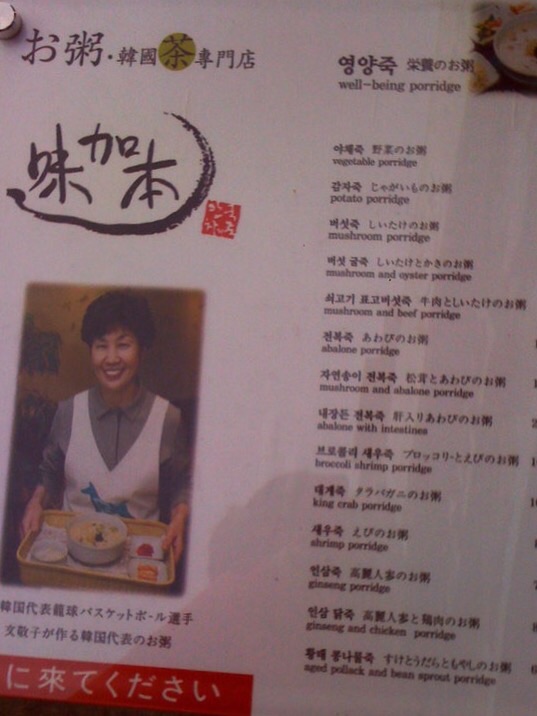 お粥・韓國茶専門店
味加本
韓国代表籠球バスケットボール選手
玄敬子が作る韓国代表のお粥
に來てください
영양죽 栄養のお粥
well-being porridge
야채죽 野菜のお粥
vegetable porridge
감자죽 じゃがいものお粥
potato porridge
버섯죽 しいたけのお粥
mushroom porridge
버섯 굴죽 しいたけとかきのお粥
mushroom and oyster porridge
쇠고기 표고버섯죽 牛肉としいたけのお粥
mushroom and beef porridge
전복죽 あわびのお粥
abalone porridge
자연송이 전복죽 松茸とあわびのお粥
mushroom and abalone porridge
내장든 전복죽 肝入りあわびのお粥
abalone with intestines
브로콜리 새우죽 ブロッコリ・とえびのお粥
broccoli shrimp porridge
대게죽 タラバガニのお粥
king crab porridge
새우죽 えびのお粥
shrimp porridge
인삼죽 高麗人参のお粥
ginseng porridge
인삼 닭죽 高麗人参と鶏肉のお粥
ginseng and chicken porridge
황태 콩나물죽 すけとうだらともやしのお粥
aged pollack and bean sprout porridge